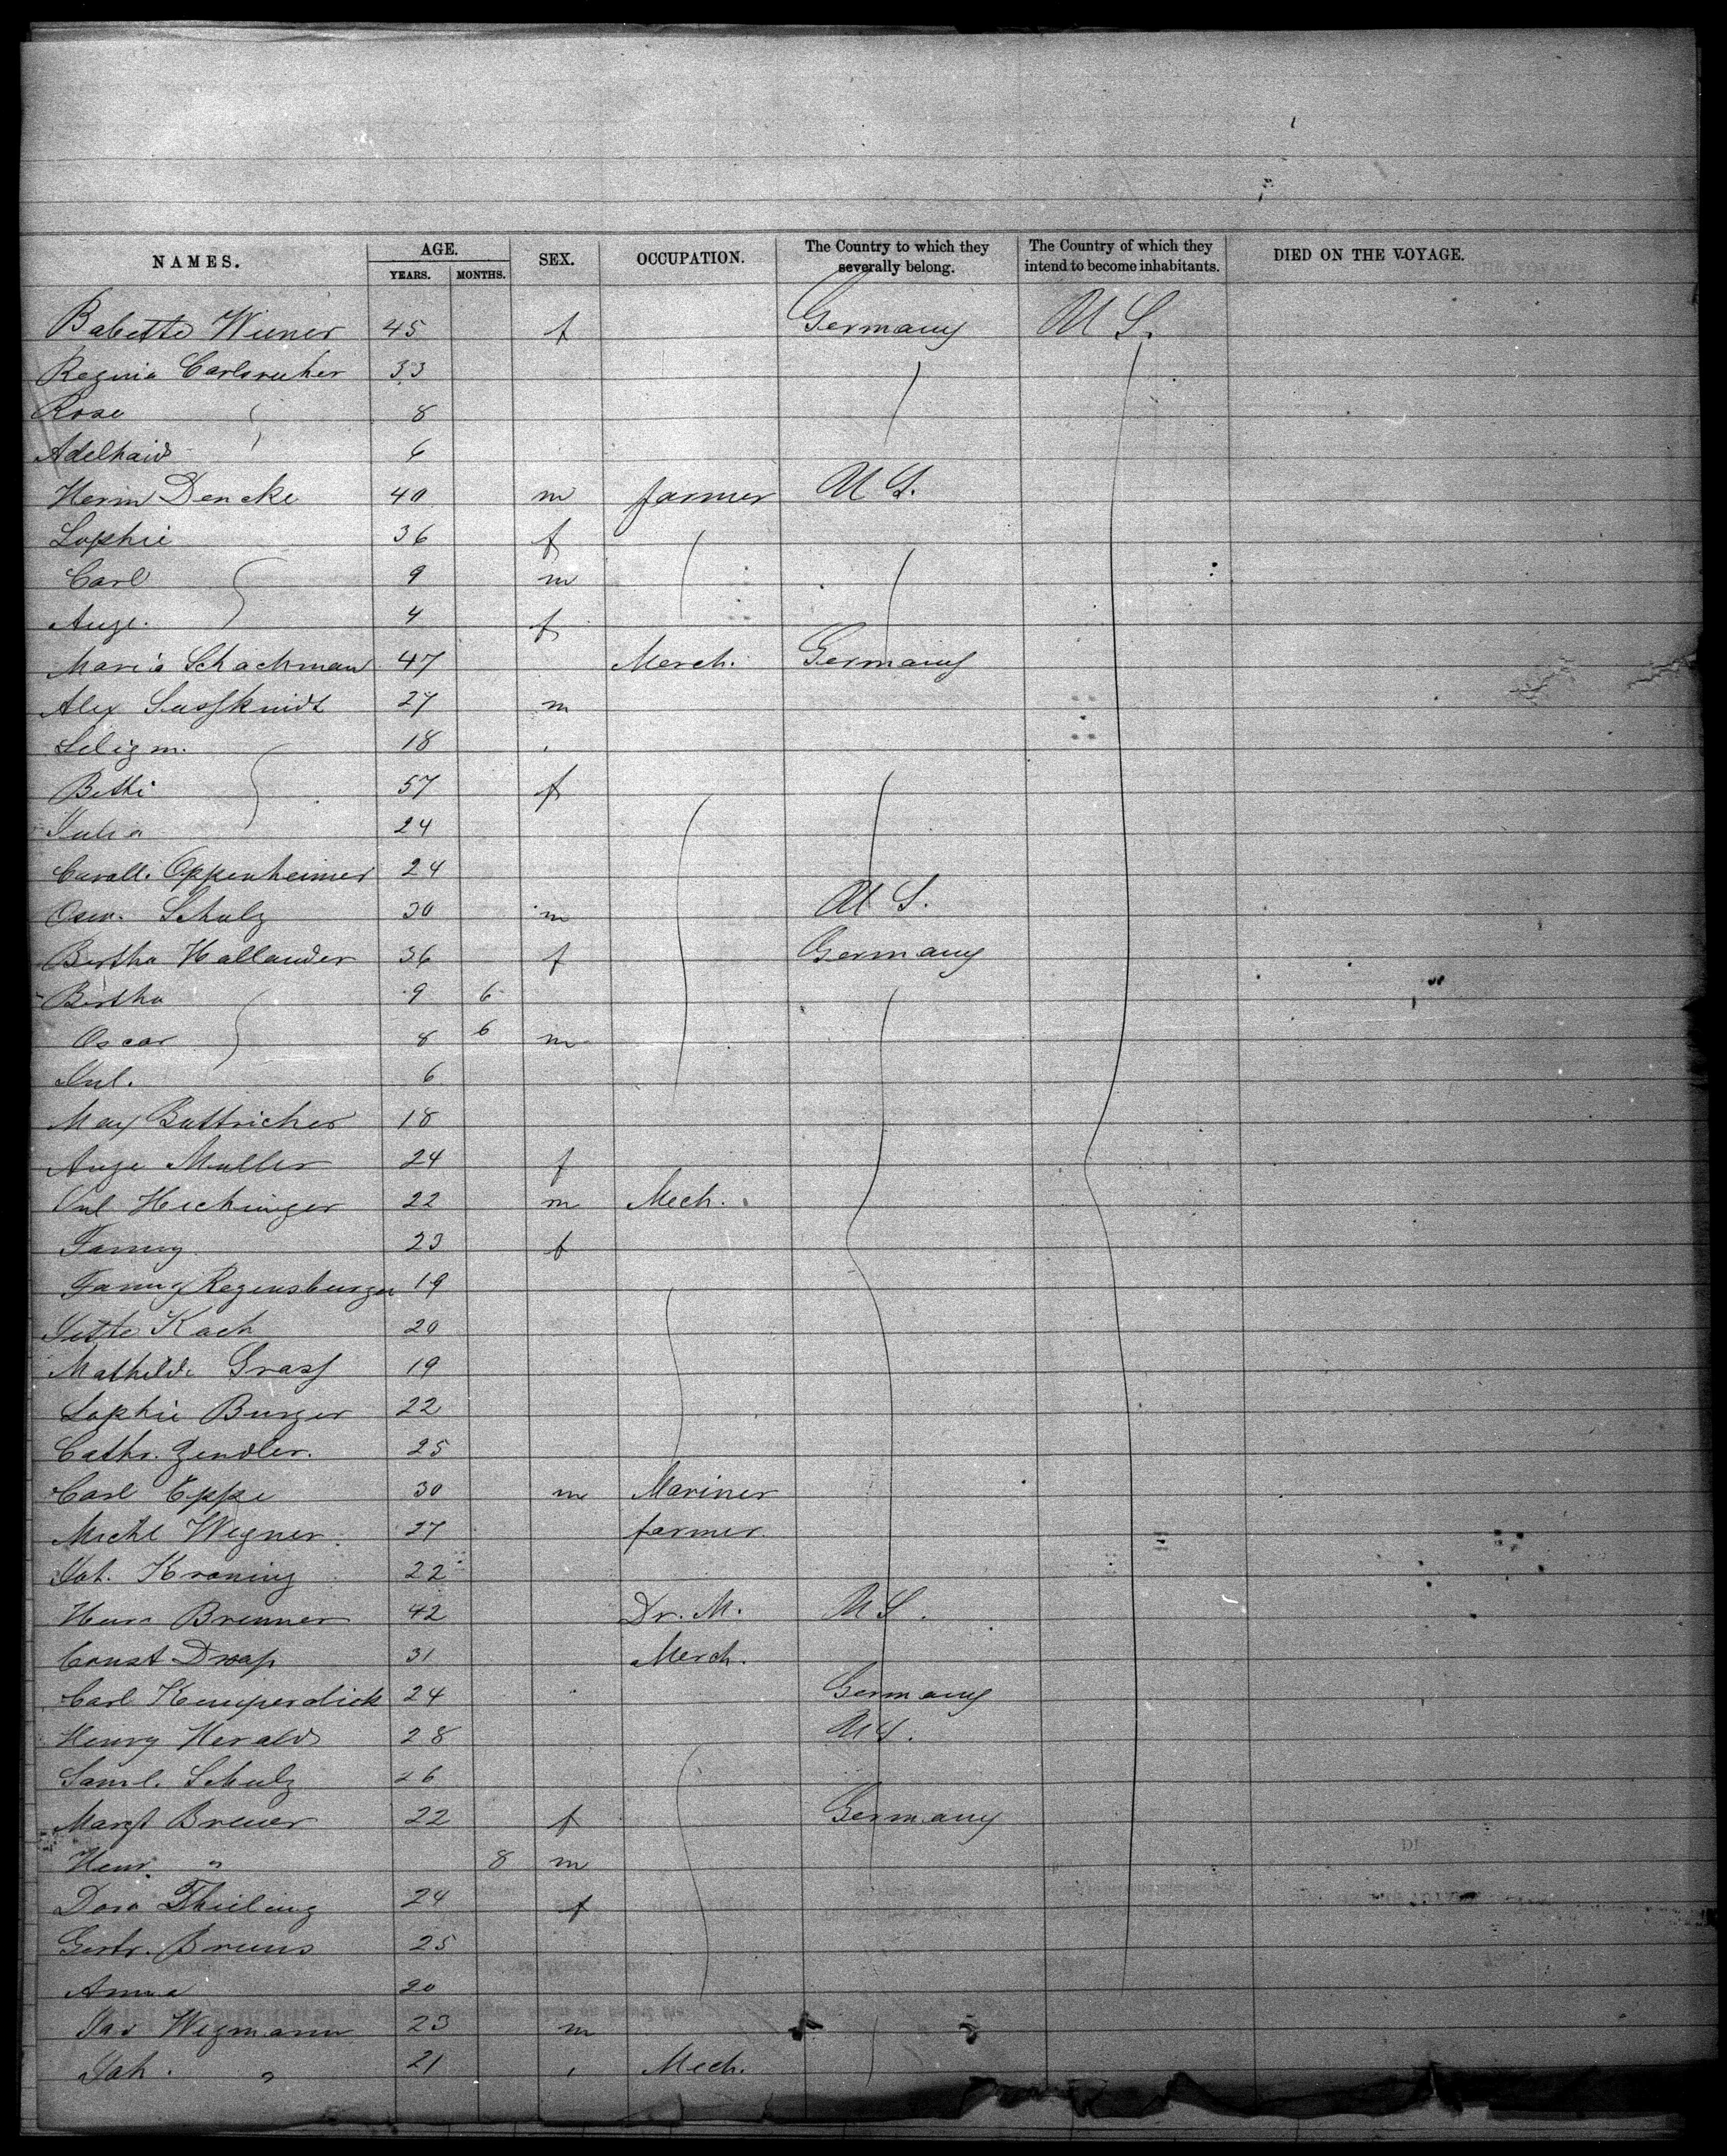 NAMES. AGE. YEARS. MONTHS. SEX. OCCUPATION. The Country to which they severally belong. The Country of which they intend to become inhabitants. DIED ON THE VOYAGE.
Babette Wiener 45 f Germany U S.
Regina Carlsruher 33
Rosa 8
Adelhaid 6
Herm Dencke 40 m farmer U S.
Sophie 36 f
Carl 9 m
Auge. 4 f
Maria Schachman 47 Merch. Germany
Alex Susskindt 27 m
Seligm. 18
Betti 57 f
Julia 24
Oppenheimer 24
Schulz 30 m U S.
Bertha Hallander 36 f Germany
Bertha 9 6
Oscar 8 6 m
Jul. 6
Max Buttricher 18
Auge Muller 24 f
Jul Hechinger 22 m Mech.
Fanny 23 f
Fanny Regensburger 19
Jette Kach 20
Mathilde Grass 19
Sophie Burger 22
Cathr. Zendler. 25
Carl Eppe 30 m Mariner
Michl Wegner 27 farmer
Joh. Kroning 22
Brenner 42 Dr. M. U S.
Const Draap 31 Merch.
Carl Kemperdick 24 Germany
Henry Herald 28 U S.
Saml. Schulz 26
Margt Breuer 22 f Germany
Henr. " 8 m
Dora Thieling 24 f
Gertr. Bruns 25
Anna 20
Wegmann 23 m
Joh. " 21 Mech.